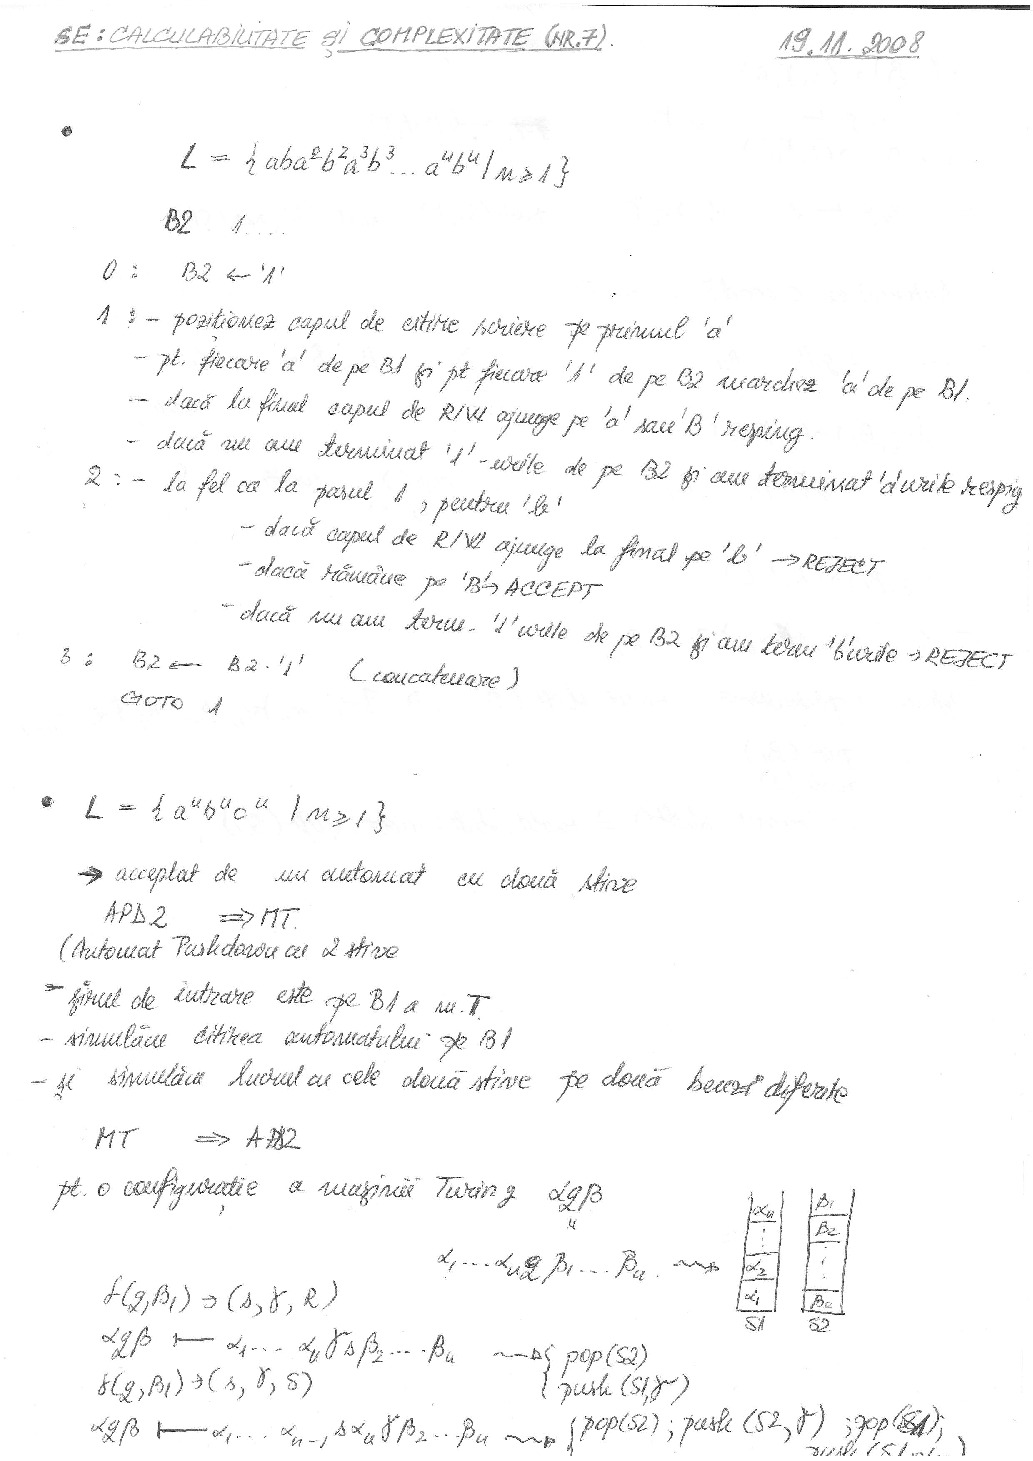 SE: CALCULABILITATE și COMPLEXITATE (NR.7). 19.11.2008
• L = {aba²b²a³b³...aⁿbⁿ | n ≥ 1}
B2 1....
0 : B2 ← '1'
1 : - poziționez capul de citire scriere pe primul 'a'
- pt. fiecare 'a' de pe B1 și pt fiecare '1' de pe B2 marchez 'a' de pe B1.
- dacă la final capul de R/W ajunge pe 'a' sau 'B' resping.
- dacă nu am terminat '1'-urile de pe B2 și am terminat 'a'urile resping
2 : - la fel ca la pasul 1, pentru 'b'
- dacă capul de R/W ajunge la final pe 'b' → REJECT
- dacă rămâne pe 'B' → ACCEPT
- dacă nu am term. '1'urile de pe B2 și am term 'b'urile → REJECT
3 : B2 ← B2·'1' (concatenare)
GOTO 1
• L = {aⁿbⁿcⁿ | n ≥ 1}
→ acceptat de un automat cu două stive
APD2 ⇒ MT.
(Automat Pushdown cu 2 stive
- șirul de intrare este pe B1 a m.T.
- simulăm citirea automatului pe B1
- și simulăm lucrul cu cele două stive pe două benzi diferite
MT ⇒ APD2
pt. o configurație a mașinii Turing αqβ
"
α₁...αₙqβ₁...βₙ. ⇝
αₙ
⋮
α₂
α₁
S1
β₁
β₂
⋮
βₙ
S2
δ(q,β₁) → (s,γ,R)
αqβ ⊢ α₁...αₙγsβ₂...βₙ ⇝ { pop(S2)
{ push(S1,γ)
δ(q,β₁) → (s,γ,S)
αqβ ⊢ α₁...αₙ₋₁sαₙγβ₂...βₙ ⇝ { pop(S2); push(S2,γ); pop(S1);